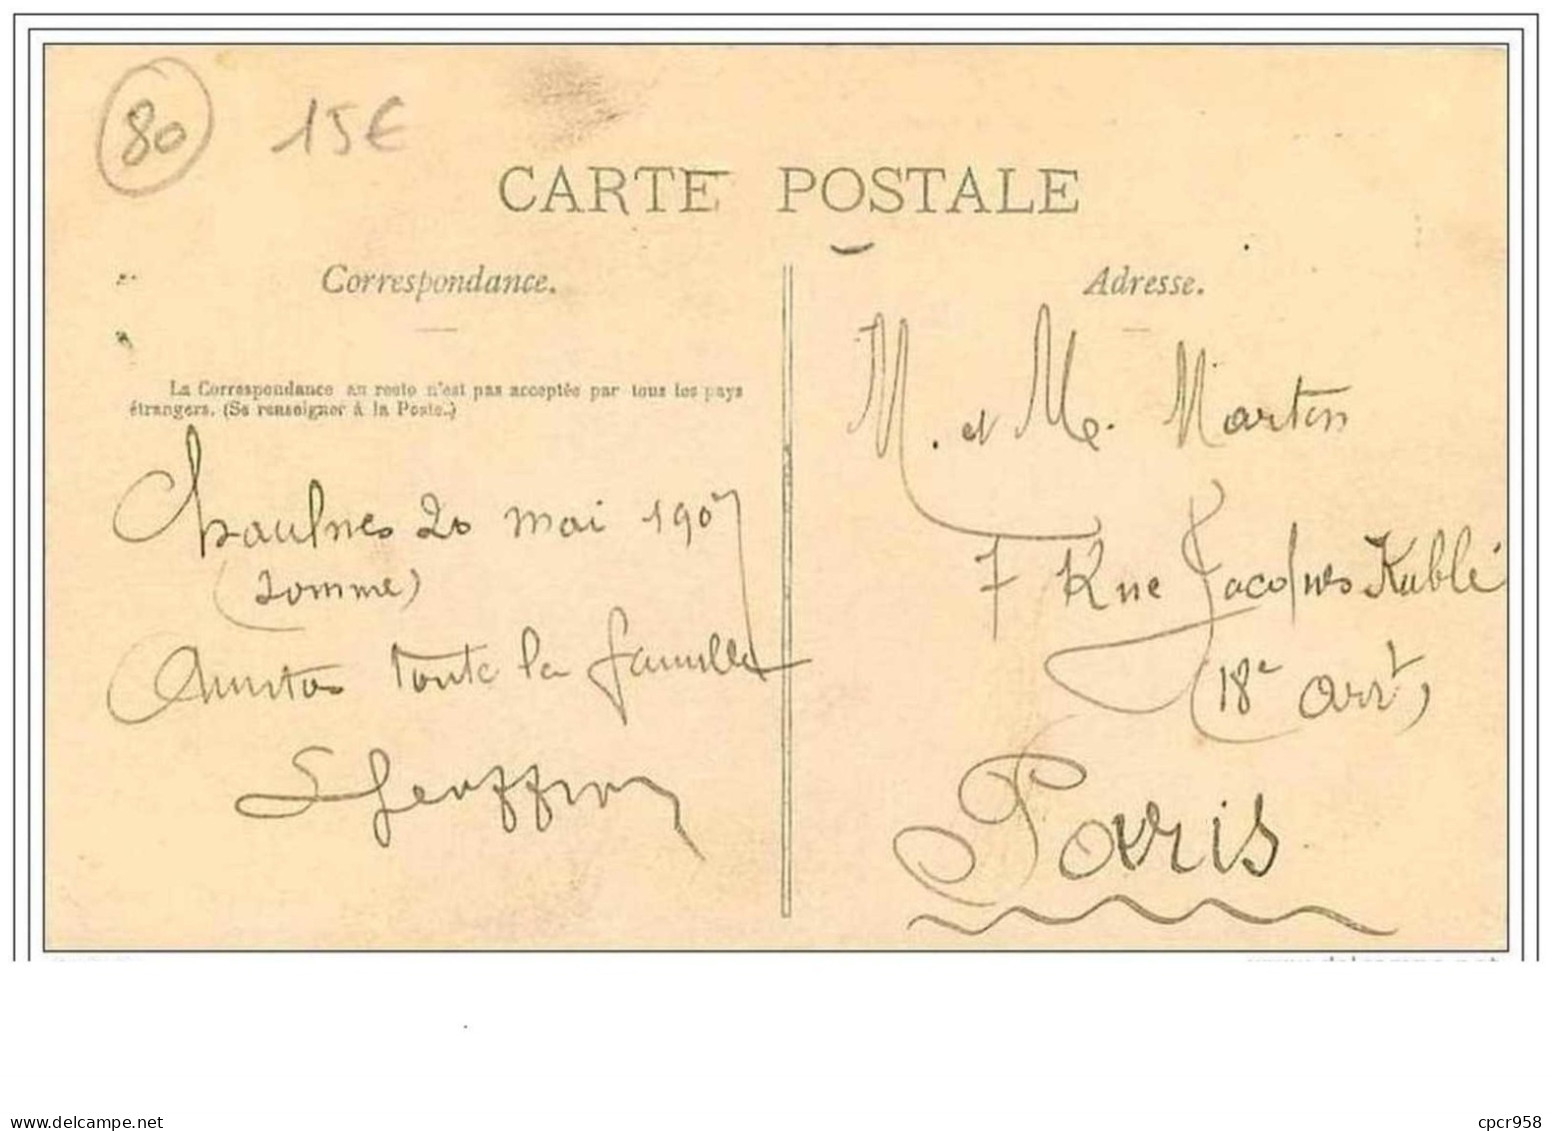 80 15€
CARTE POSTALE
Correspondance.
La Correspondance au reste n'est pas acceptée par tous les pays
étrangers. (Se renseigner à la Poste.)
Chaulnes 20 mai 1907
(Somme)
toute la famille
Adresse.
M. et Me. Marton
7 Rue Jacques Kablé
(18e arrt)
Paris
www.delcampe.net
My ebay cpcr958.fr
cpcr958